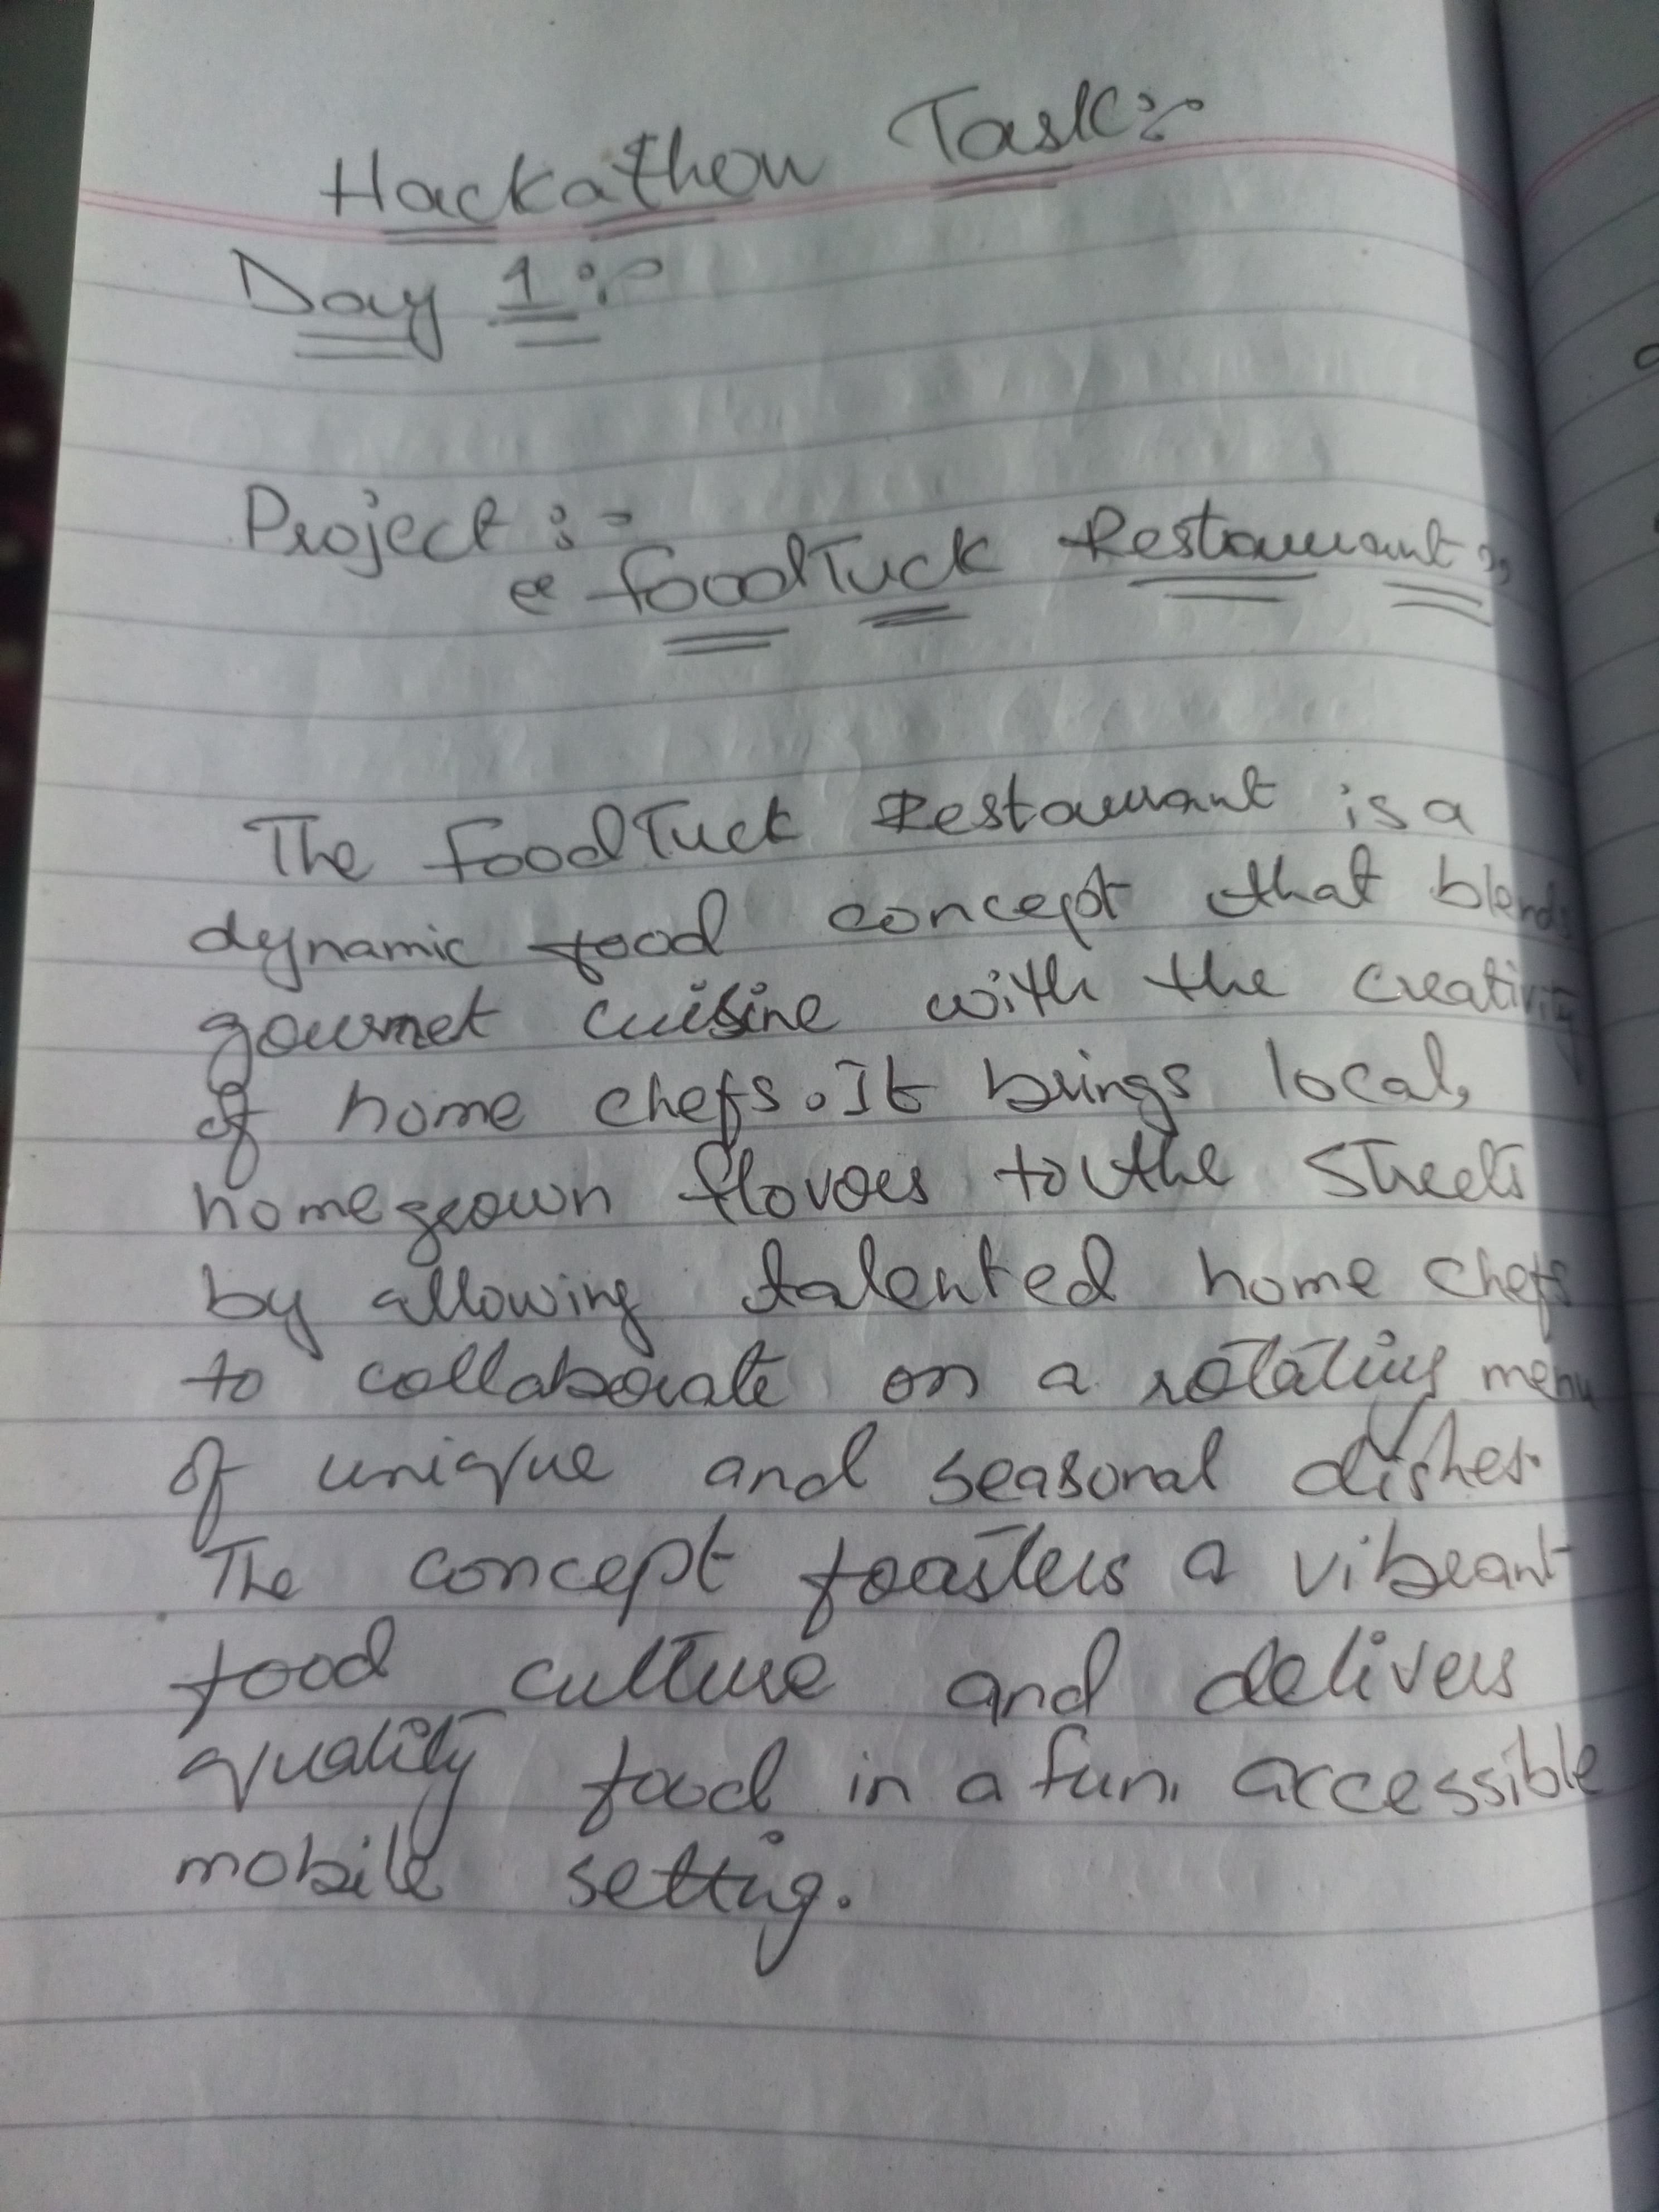 Hackathon Task:-
Day 1:-
Project :-
"FoodTuck Restaurant"
The FoodTuck Restaurant is a
dynamic food concept that blends
gourmet cuisine with the creativity
of home chefs. It brings local,
homegrown flavors to the streets
by allowing talented home chefs
to collaborate on a rotating menu
of unique and seasonal dishes.
The concept foasters a vibrant
food culture and delivers
quality food in a fun, accessible
mobile setting.